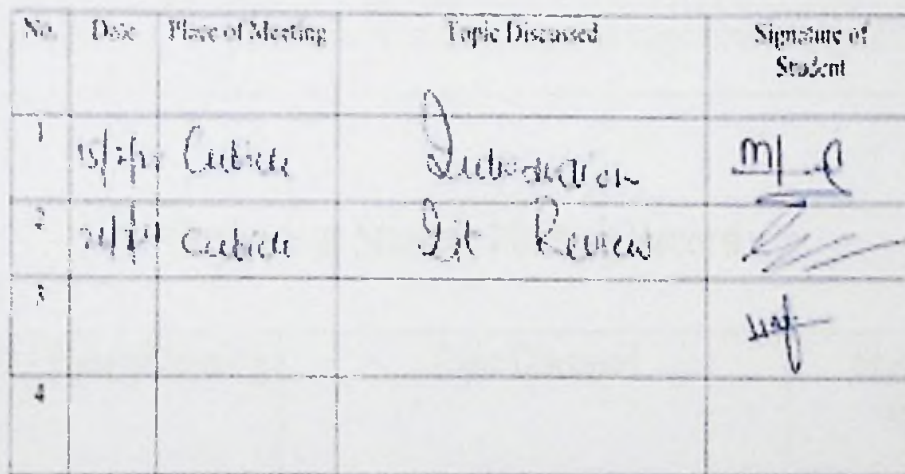 No. Date Place of Meeting Topic Discussed Signature of
Student
1 Cubicle Introduction
2 Cubicle Ist Review
3
4